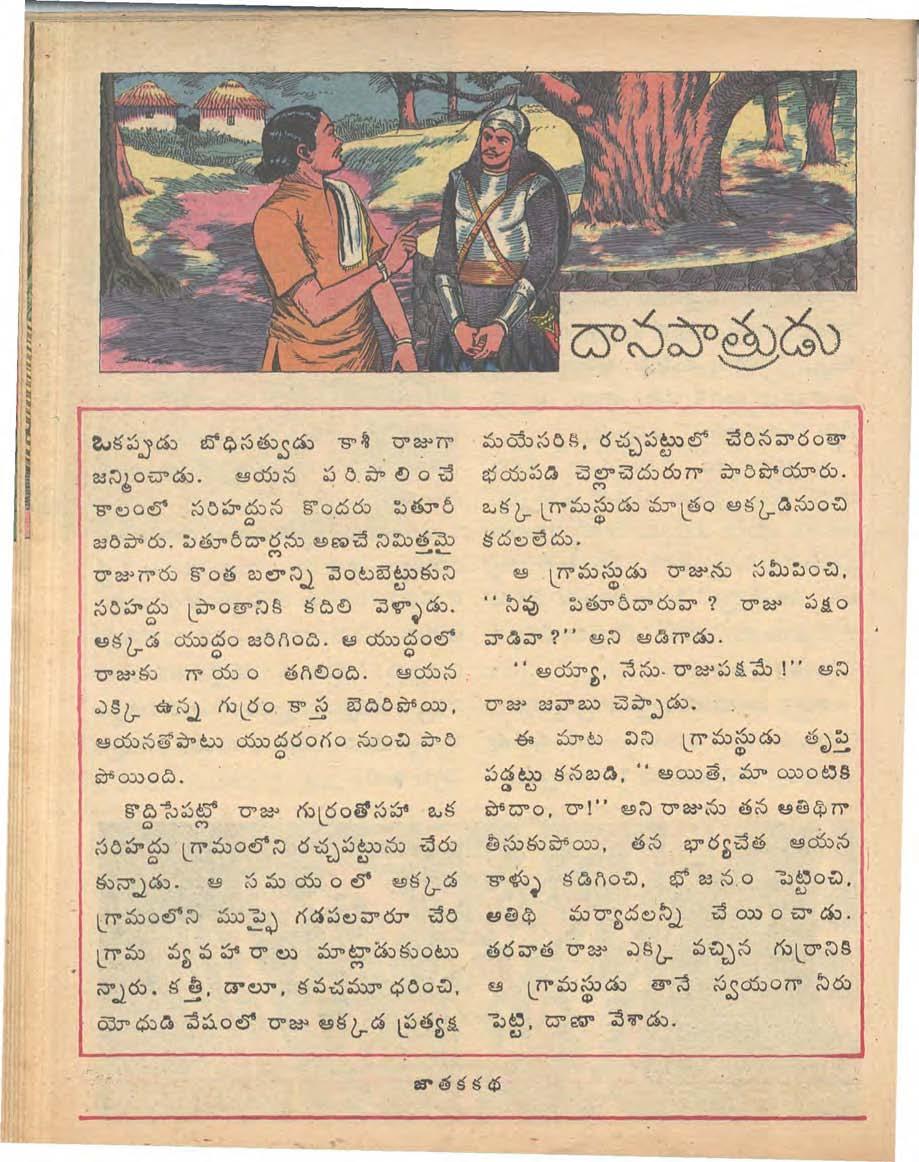 దానపాత్రుడు
ఒకప్పుడు బోధిసత్వుడు కాశీ రాజుగా
జన్మించాడు. ఆయన పరిపాలించే
కాలంలో సరిహద్దున కొందరు పితూరీ
జరిపారు. పితూరీదార్లను అణచే నిమిత్తమై
రాజుగారు కొంత బలాన్ని వెంటబెట్టుకుని
సరిహద్దు ప్రాంతానికి కదిలి వెళ్ళాడు.
అక్కడ యుద్ధం జరిగింది. ఆ యుద్ధంలో
రాజుకు గాయం తగిలింది. ఆయన
ఎక్కి ఉన్న గుర్రం కాస్త బెదిరిపోయి,
ఆయనతోపాటు యుద్ధరంగం నుంచి పారి
పోయింది.
కొద్దిసేపట్లో రాజు గుర్రంతోసహా ఒక
సరిహద్దు గ్రామంలోని రచ్చపట్టును చేరు
కున్నాడు. ఆ సమయంలో అక్కడ
గ్రామంలోని ముప్ఫై గడపలవారూ చేరి
గ్రామ వ్యవహారాలు మాట్లాడుకుంటు
న్నారు. కత్తీ, డాలూ, కవచమూ ధరించి,
యోధుడి వేషంలో రాజు అక్కడ ప్రత్యక్ష
మయేసరికి, రచ్చపట్టులో చేరినవారంతా
భయపడి చెల్లాచెదురుగా పారిపోయారు.
ఒక్క గ్రామస్థుడు మాత్రం అక్కడినుంచి
కదలలేదు.
ఆ గ్రామస్థుడు రాజును సమీపించి,
"నీవు పితూరీదారువా? రాజు పక్షం
వాడివా?" అని అడిగాడు.
"అయ్యా, నేను రాజుపక్షమే!" అని
రాజు జవాబు చెప్పాడు.
ఈ మాట విని గ్రామస్థుడు తృప్తి
పడ్డట్టు కనబడి, "అయితే, మా యింటికి
పోదాం, రా!" అని రాజును తన అతిథిగా
తీసుకుపోయి, తన భార్యచేత ఆయన
కాళ్ళు కడిగించి, భోజనం పెట్టించి,
అతిథి మర్యాదలన్నీ చేయించాడు.
తరవాత రాజు ఎక్కి వచ్చిన గుర్రానికి
ఆ గ్రామస్థుడు తానే స్వయంగా నీరు
పెట్టి, దాణా వేశాడు.
జాతకకథ